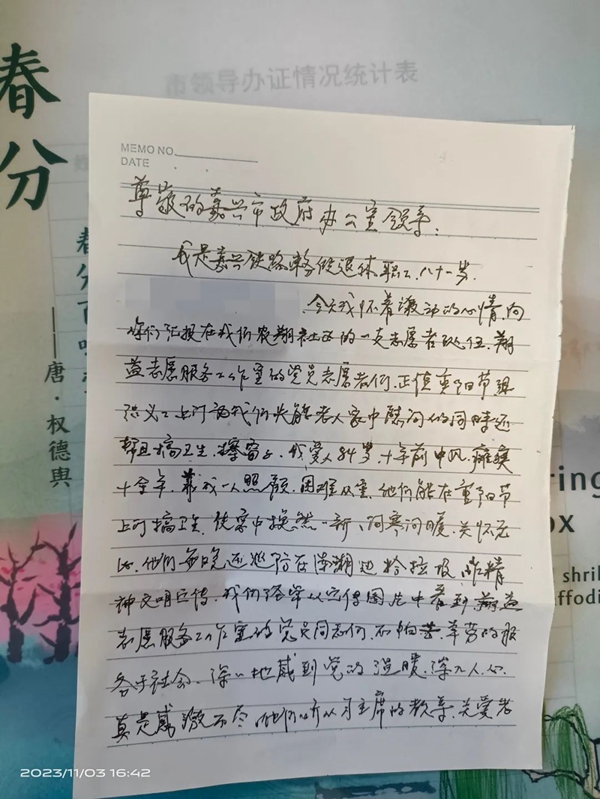 春分
市领导办证情况统计表
唐·权德舆
MEMO NO.
DATE
尊敬的嘉兴市政府办公室领导：
我是嘉兴铁路 退休职工，八十一岁，
今天我怀着激动的心情向
你们汇报在我们农翔社区的一支志愿者队伍，翔
益志愿服务工作室的党员志愿者们，正值重阳节组
织义工上门为我们失能老人家中慰问的同时还
帮且搞卫生，擦窗子，我爱人84岁，十年前中风瘫痪
十余年，靠我一人照顾，困难从生，他们能在重阳节
上门搞卫生，使家中换然一新，问寒问暖，关怀无
比，他们每晚还巡防在南湖边捡垃圾，做精
神文明宣传，我们经常从宣传图片中看到翔益
志愿服务工作室的党员同志们，不怕苦，辛劳的服
务于社会，深深地感到党的温暖，深入人心，
真是感激不尽，他们听从习主席的教导，关爱老
ring
ox
shril
affodi
2023/11/03 16:42